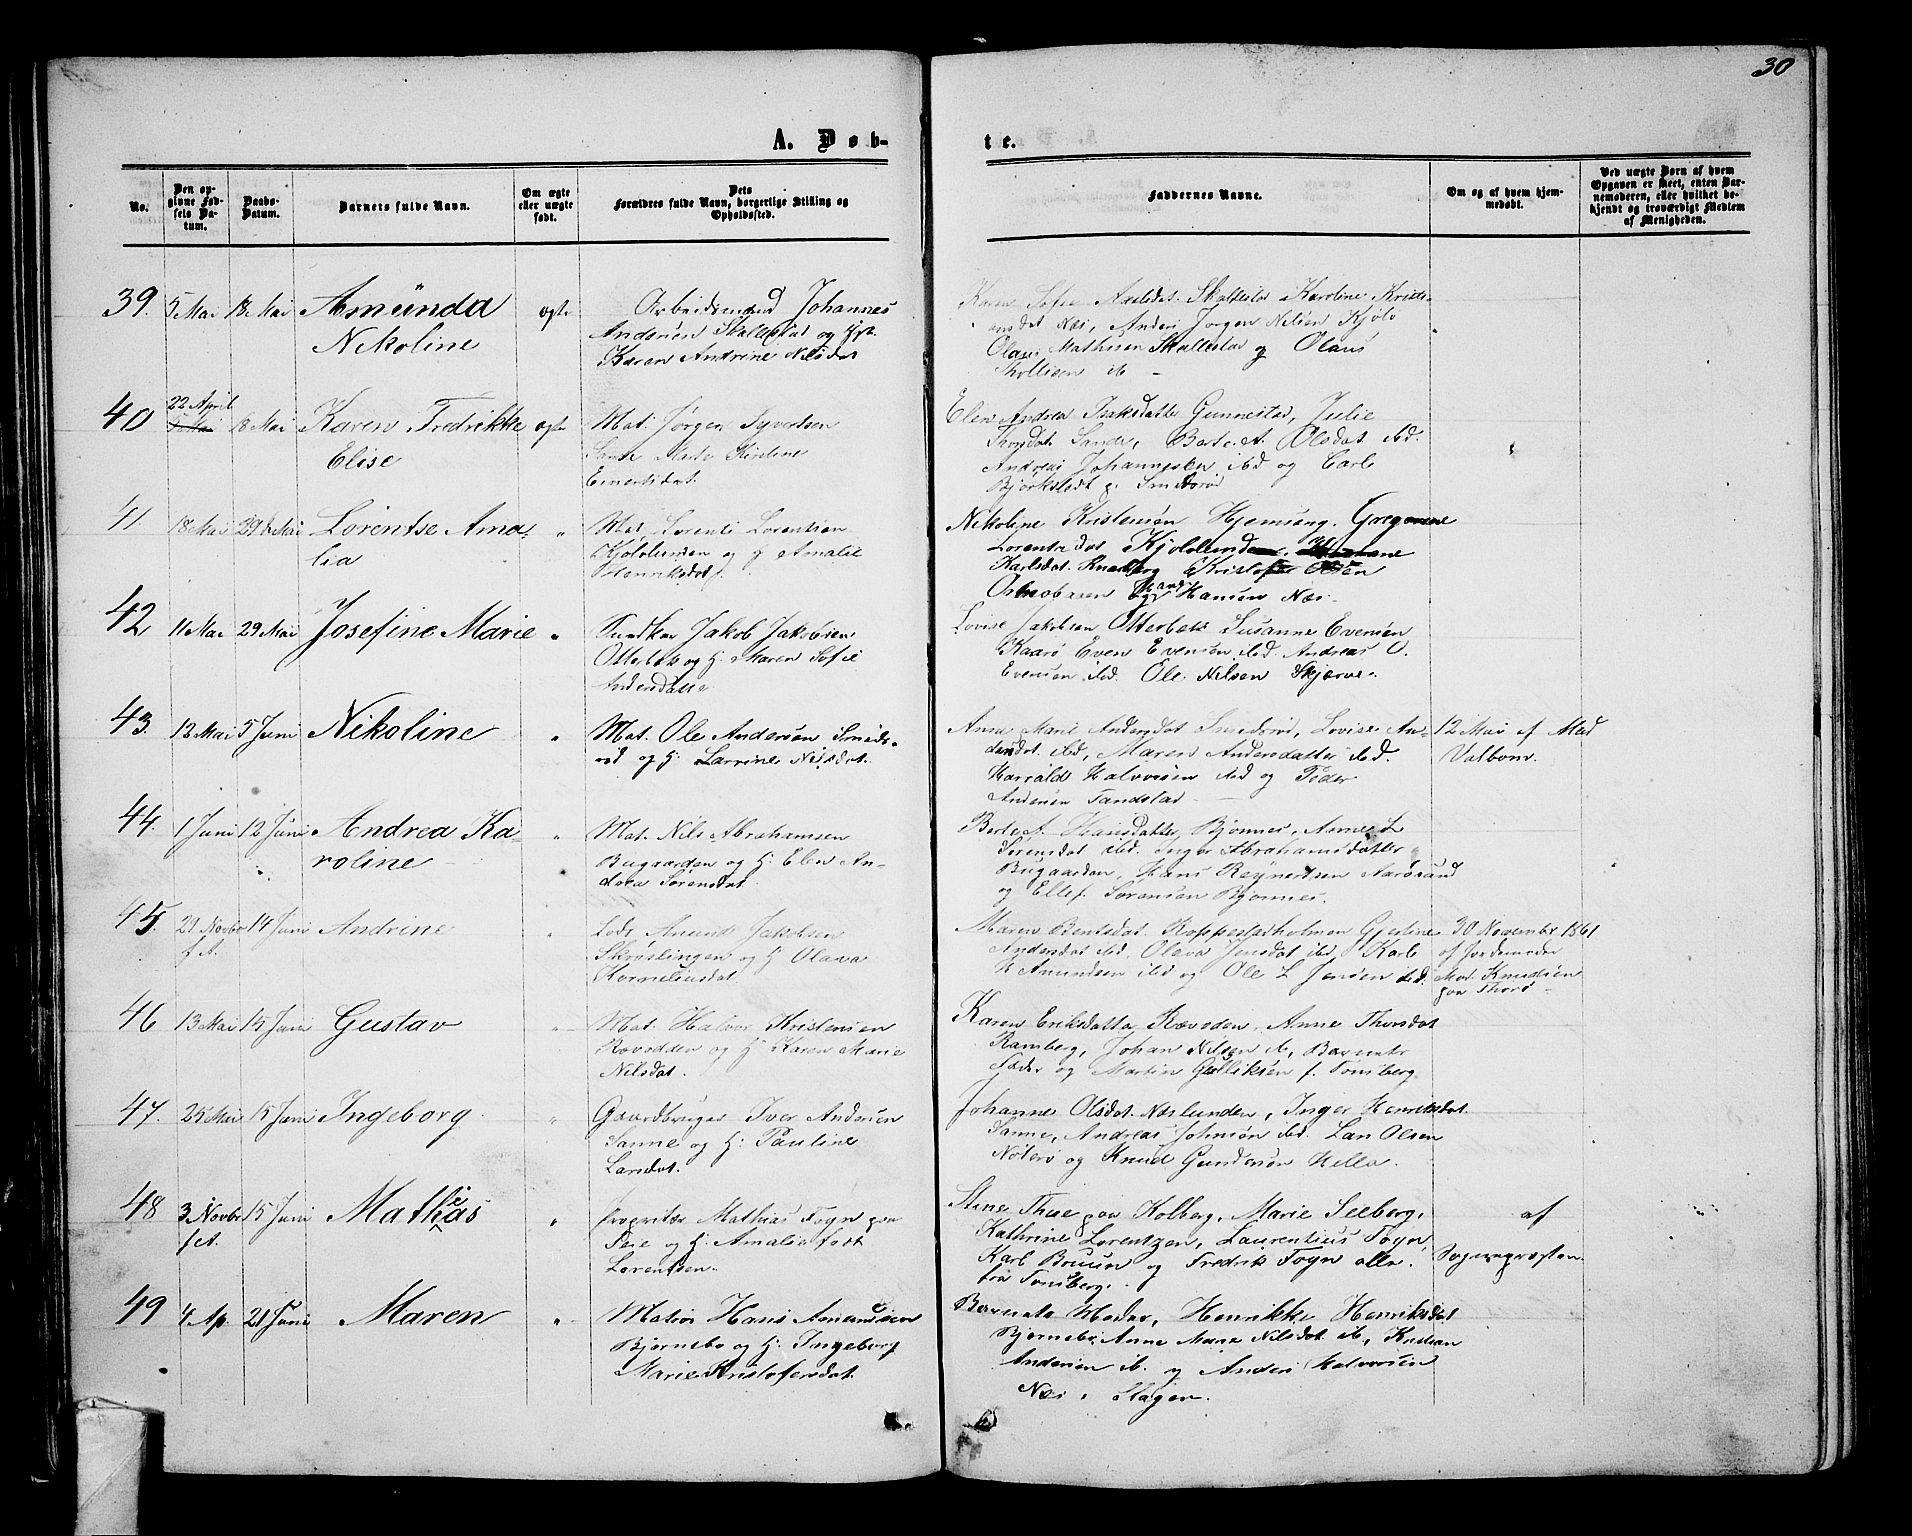 30
A. Døb-
te.
No.
Den op-
givne Fød-
sels Da-
tum.
Daabs-
Datum.
Barnets fulde Navn.
Om ægte
eller uægte
født.
Dets
Forældres fulde Navn, borgerlige Stilling og
Opholdssted.
Faddernes Navne.
Om og af hvem hjem-
medøbt.
Ved uægte Børn af hvem
Opgaven er skeet, enten Bar-
nemoderen, eller hvilket be-
kjendt og troværdigt Medlem
af Menigheden.
39. 5 Mai 18 Mai Amünda ægte Arbeidsmand Johannes
Nikoline
Andersen Skallestad og H.
Karen Andrine Nilsdat
Karen Sofie Axelsdat. Skallestad Karoline Kristi-
ansdat Næs, Anders Jørgen Nilsen Kjølø
Olaus Mathisen Skallestad og Olaus
ib -
40 22 April
5 Mai 18 Mai Karen Fredrikke ægte Mat. Jørgen Syvertsen
Elise
Sande Kirstine
Einertsdat.
Elen Andrea Isaksdatter Gunnestad, Julie
Thorsdat Sande, Berte A. Olsdat ibd.
Andreas Johannesen ibd og Carl
Bjørkstedt p. Smidsrød
41 18 Mai 29 Mai Lorentse Ama-
lia
" Mat. Lorents Lorentsen
Kjolelunden og H Amalie
Henriksdat.
Nikoline Kristensen Hjemseng, Gregorine
Lorentsdat Kjolelunden,
Karlsdat. Ramberg Kristofer Olsen
Hansen Næs.
42 11 Mai 29 Mai Josefine Marie " Jakob Jakobsen
Otterbek og H. Maren Sofie
Andersdatter
Lovise Jakobsen Otterbek Susanne Evensen
Kaarø Even Evensen ibd. Andreas O.
Evensen ibd. Ole Nilsen Skjerve.
43. 12 Mai 5 Juni Nikoline " Mat. Ole Andersen Smids-
rød og H. Lavrine Nilsdat.
Anne Marie Andersdat Smidsrød, Lovise An-
dersdat. ibd, Maren Andersdatter ibd.
Harrald Halvorsen ibd og Peder
Andersen Sandstad
12 Mai af Mad
Valbom.
44. 1 Juni 12 Juni Andrea Ka-
roline
" Mat. Nils Abrahamsen
Bugaarden og H. Elen An-
drea Sørensdat.
Berte A. Hansdatter Bjønnes, Anne L
Sørensdat ibd. Inger Abrahamsdatter
Bugaarden, Hans Reynertsen Aarøsund
og Ellef Sørensen Bjønnes.
45. 29 Novbr
f. A. 14 Juni Andrine " Lods Amund Jakobsen
Skrøslingen og H Olava
Korneliusdat.
Maren Berntsdat. Koppestadholmen Gjertine
Andersdat ibd. Oleva Jensdat ibd Karl
H Amundsen ibd og Ole L Jensen ibd.
30 November 1861
af Jordemoder
Mad. Knudsen
paa Thorø
46 13 Mai 15 Juni Gustav " Mat. Halvor Kristensen
Røvodden og H Karen Marie
Nilsdat.
Karen Eriksdatter Rævodden, Anne Thorsdat
Ramberg, Johan Nilsen ib, Barnets
Fader og Martin Gulliksen f. Tønsberg
47. 25 Mai 15 Juni Ingeborg " Gaardbruger Iver Andersen
Sanne og H. Pauline
Larsdat.
Johanne Olsdat. Næslunden, Inger Henriksdat.
Sanne, Andreas Johnsen ibd. Lars Olsen
Nøterø og Knud Gundersen Hella.
48 3 Novbr
f.A. 15 Juni Mathias " Proprietær Mathias Fogn paa
Teie og H. Amalie født
Lorentsen.
Stine Thue paa Kolberg, Marie Seeberg,
Kathrine Lorentzen, Laurentius Fogn,
Karl Bruun og Fredrik Fogn alle
fra Tønsberg.
af
Sognepræsten
49 4 Ap. 21 Juni Maren " Matros Hans Amundsen
Bjørnebo og H. Ingeborg
Marie Kristofersdat.
Barnets Moder, Henrikke Henriksdat
Bjørnebo, Anne Marie Nilsdat ib, Kristian
Andersen ib. og Anders Halvorsen
Næs i Slagen.